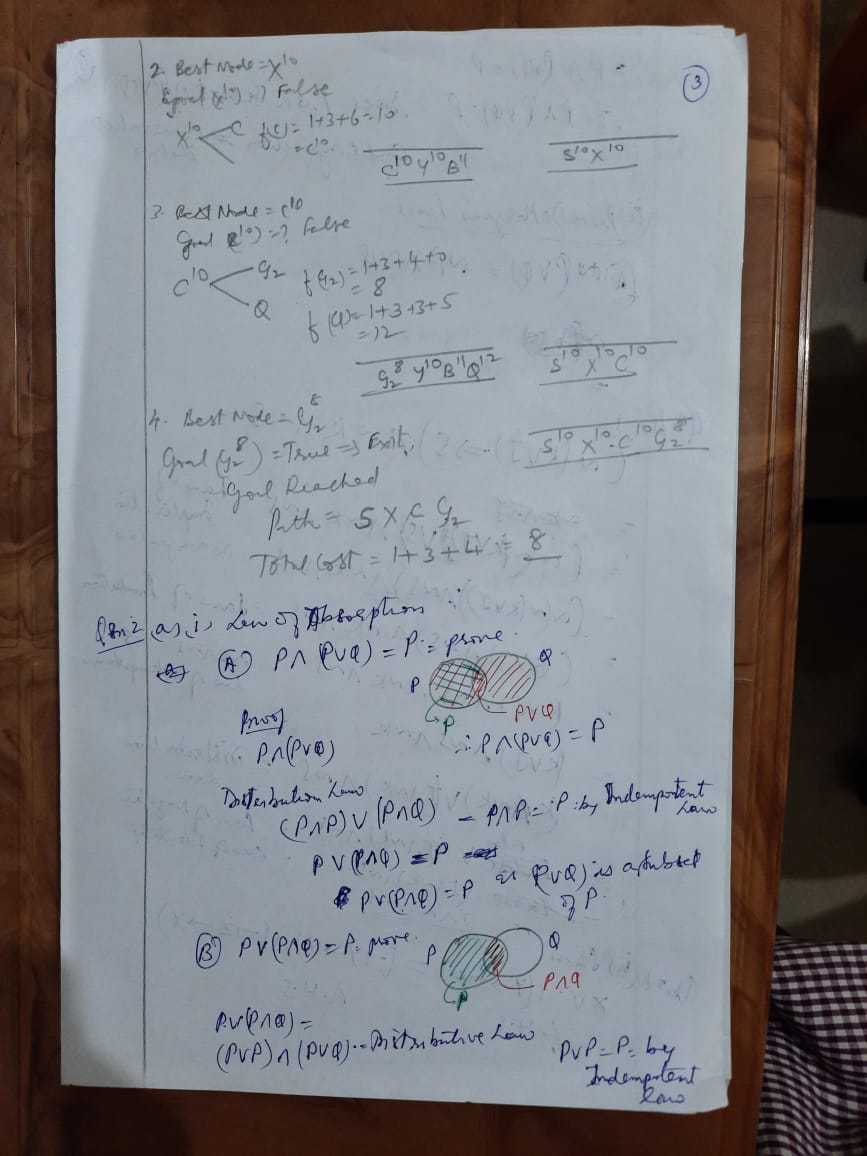 3
2. Best Node = X¹⁰
Goal (X¹⁰) =? False
X¹⁰ < C f(C) = 1+3+6=10.
= C¹⁰
C¹⁰ Y¹⁰ B¹¹ S¹⁰ X¹⁰
3. Best Node = C¹⁰
Goal (C¹⁰) =? False
C¹⁰ < G₂ f(G₂) = 1+3+4+0.
= 8
Q f(Q) = 1+3+3+5
= 12
G₂⁸ Y¹⁰ B¹¹ Q¹² S¹⁰ X¹⁰ C¹⁰
4. Best Node = G₂⁸
Goal (G₂⁸) = True => Exit. S¹⁰ X¹⁰ C¹⁰ G₂⁸
Goal Reached
Path = S X C G₂
Total Cost = 1+3+4 = 8
Qsn:2 a) i) Law of Absorption :
(A) P∧(P∨Q) = P = prove.
P Q
P P∨Q
Proof
P∧(P∨Q) ∴ P∧(P∨Q) = P
Distribution Law
(P∧P)∨(P∧Q) – P∧P = P : by Indempotent Law
P∨(P∧Q) = P
P∨(P∧Q) = P as (P∨Q) is a subset of P.
(B) P∨(P∧Q) = P. prove.
P Q
P P∧Q
P∨(P∧Q) =
(P∨P)∧(P∨Q) - Distributive Law P∨P = P = by
Indempotent
law